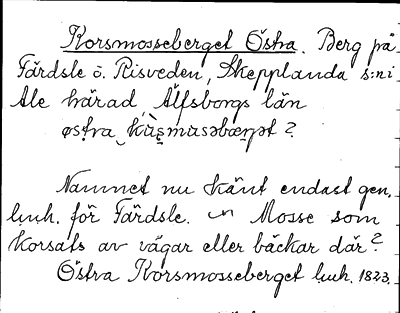 Korsmosseberget Östra. Berg på
Färdsle ö. Risveden, Skepplanda s:n i
Ale härad, Älfsborgs län
østra
Namnet nu känt endast gen.
ljuh. för Färdsle. Mosse som
korsats av vägar eller bäckar där?
Östra Korsmosseberget ljuh. 1823.